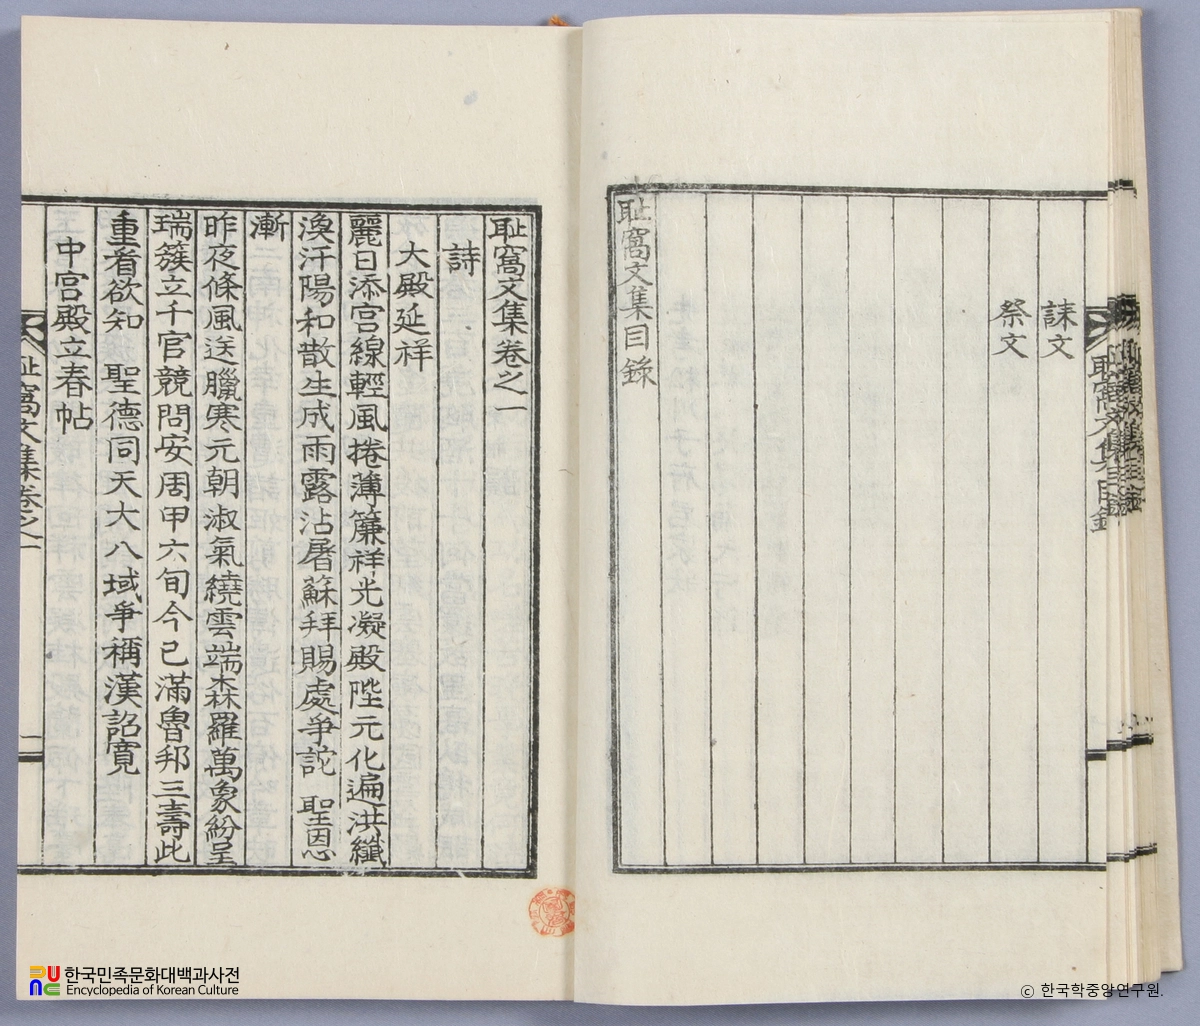 誄文
祭文
耻窩文集目錄
耻窩文集目錄
耻窩文集卷之一
詩
大殿延祥
麗日添宮線輕風捲薄簾祥光凝殿陛元化遍洪纖
渙汗陽和散生成雨露沾屠蘇拜賜處爭詑 聖恩
漸
昨夜條風送臘寒元朝淑氣繞雲端森羅萬象紛呈
瑞簇立千官競問安周甲六旬今已滿魯邦三壽此
重看欲知 聖德同天大八域爭稱漢詔寬
中宮殿立春帖
耻窩文集卷之一
一
한국민족문화대백과사전
Encyclopedia of Korean Culture
ⓒ 한국학중앙연구원.